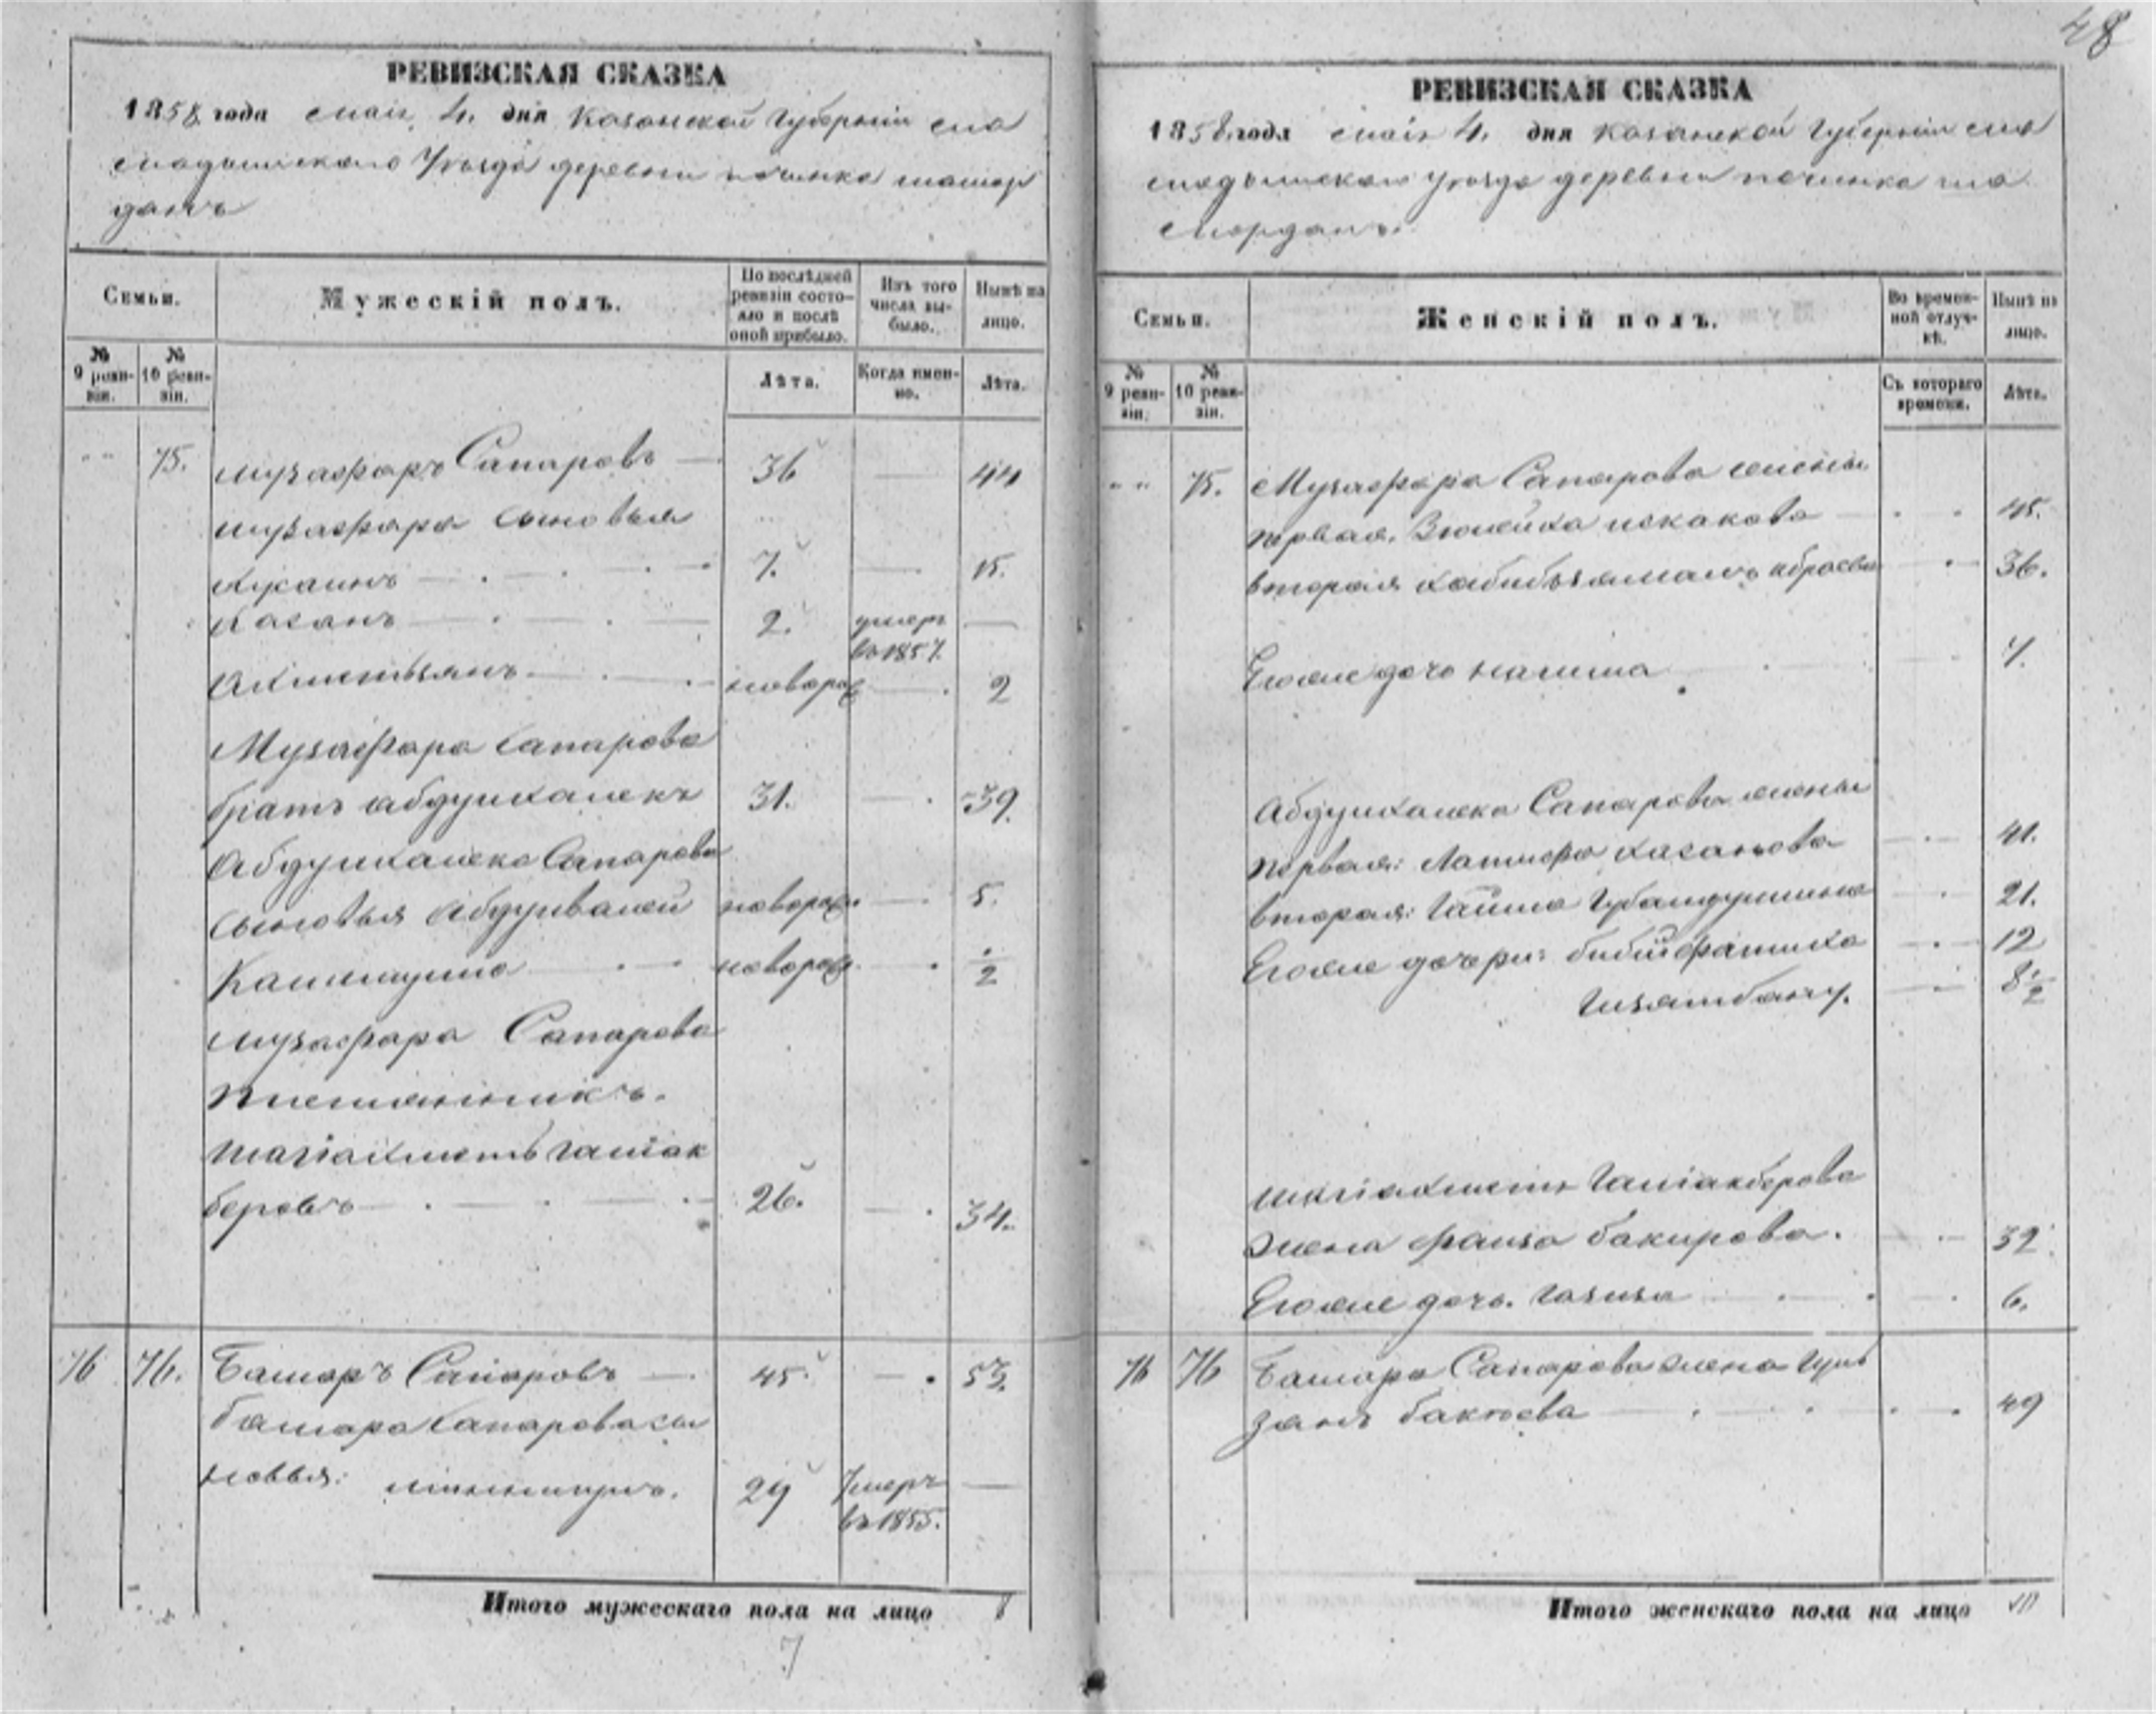 48
РЕВИЗСКАЯ СКАЗКА
1858 года маія 4. дня Казанской Губерніи Ма
мадышскаго Уѣзда деревни починка шемор
данъ
Семьи.
Мужескій полъ.
По послѣдней ревизіи состо-
яло и послѣ
оной прибыло.
Изъ того
числа вы-
было.
Нынѣ на
лицо.
№
9 реви-
зіи.
№
10 реви-
зіи.
Лѣта.
Когда имен-
но.
Лѣта.
75. Музафаръ Сапаровъ 36 44
музафара сыновья
Хусаинъ 7. 15.
Хасанъ 2. умеръ
въ 1857.
Ахметьянъ новорож 2
Музафара Сапарова
братъ абдулхалекъ 31. 39.
Абдулхалека Сапарова
сыновья Абдулвалей новорож. 5.
Калимулла новорож. 1/2
музафара Сапарова
племянникъ.
шагіахметъ галіак
беровъ 26. 34.
76 76. Башаръ Сапаровъ 45. 53.
башара Сапарова сы
новья: миннигулъ. 29 Умеръ
въ 1855.
Итого мужескаго пола на лицо 8
7
РЕВИЗСКАЯ СКАЗКА
1858 года маія 4. дня Казанской Губерніи Ма
мадышскаго Уѣзда деревни починка ше
мордани.
Семьи.
Женскій полъ.
Во времен-
ной отлуч-
кѣ.
Нынѣ на
лицо.
№
9 реви-
зіи.
№
10 реви-
зіи.
Съ котораго
времени.
Лѣта.
75. Музафара Сапарова жены
первая, Зюлейха искакова 45.
вторая хабибьзямалъ 36.
Егоже дочь 7.
Абдулхалека Сапарова жены
первая: Латифа хасанова 41.
вторая: Губайдуллина 21.
Егоже дочери: бибифатиха 12
Гизятбану. 8 1/2
шагіахмета Галіакберова
жена фаиза бакирова. 32.
Егоже дочь. Газиза 6.
76 76 Башара Сапарова жена Гуль
занъ бакѣева 49
Итого женскаго пола на лицо 10